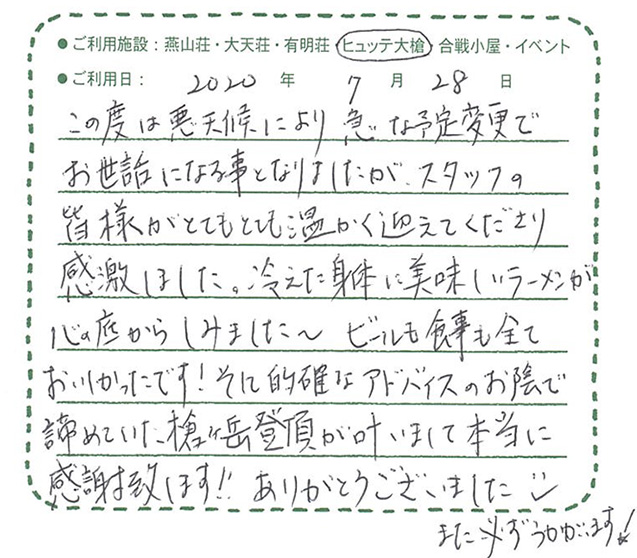 ●ご利用施設：燕山荘・大天荘・有明荘・ヒュッテ大槍・合戦小屋・イベント
●ご利用日： 2020 年 7 月 28 日
この度は悪天候により急な予定変更で
お世話になる事となりましたが、スタッフの
皆様がとてもとても温かく迎えてくださり
感激しました。冷えた身体に美味しいラーメンが
心の底からしみました〜 ビールも食事も全て
おいしかったです！そして的確なアドバイスのお陰で
諦めていた槍ヶ岳登頂が叶いまして本当に
感謝致します!! ありがとうございました
また必ずうかがいます！